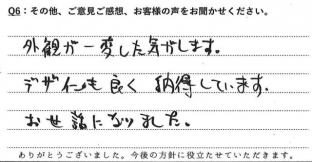 Q6：その他、ご意見ご感想、お客様の声をお聞かせください。
外観が一変した気がします。
デザインも良く 納得しています。
お世話になりました。
ありがとうございました。今後の方針に役立たせていただきます。